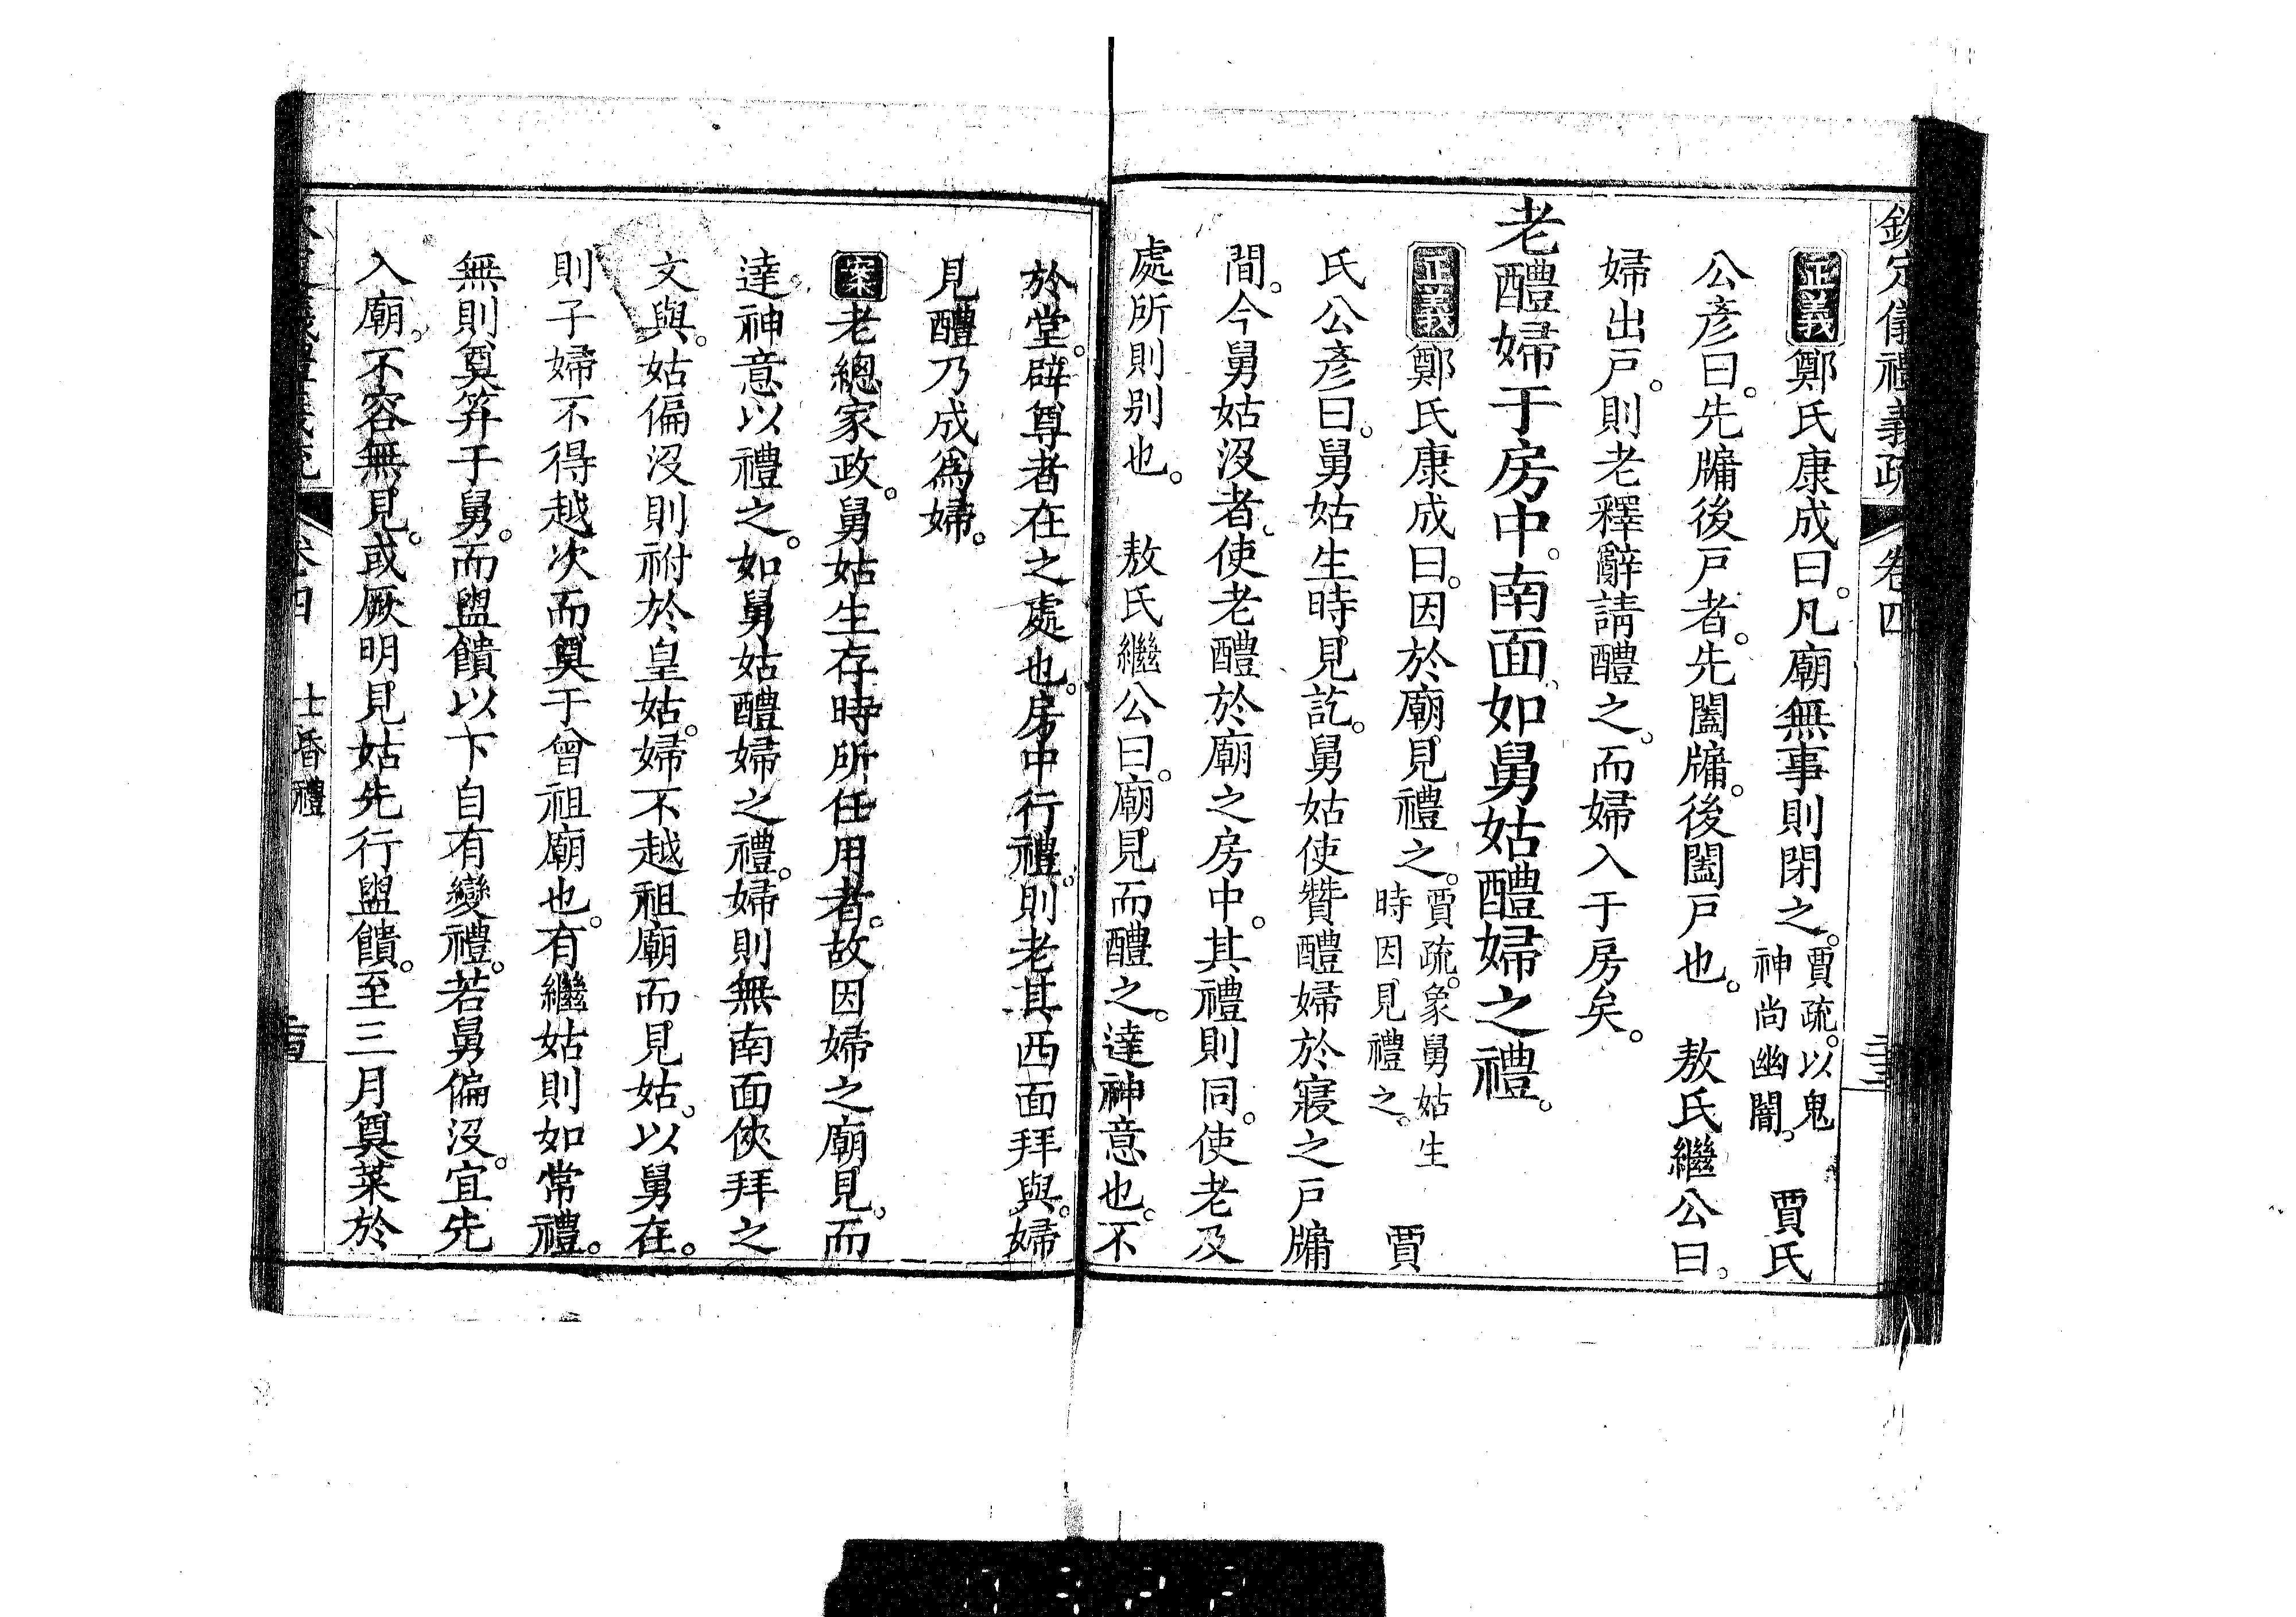 欽定儀禮義疏 卷四
正義鄭氏康成曰。凡廟無事則閉之。賈疏。以鬼神尚幽闇。 賈氏
公彥曰。先牖後戶者。先闔牖。後闔戶也。 敖氏繼公曰。
婦出戶。則老釋辭請醴之。而婦入于房矣。
老醴婦于房中。南面。如舅姑醴婦之禮。
正義鄭氏康成曰。因於廟見禮之。賈疏。象舅姑生時因見禮之。 賈
氏公彥曰。舅姑生時見訖。舅姑使贊醴婦於寢之戶牖
間。今舅姑沒者。使老醴於廟之房中。其禮則同。使老及
處所則別也。 敖氏繼公曰。廟見而醴之。達神意也。不
於堂。辟尊者在之處也。房中行禮。則老其西面拜與。婦
見醴乃成爲婦。
案老總家政。舅姑生存時所任用者。故因婦之廟見。而
達神意以禮之。如舅姑醴婦之禮。婦則無南面俠拜之
文與。姑偏沒則祔於皇姑。婦不越祖廟而見姑。以舅在。
則子婦不得越次而奠于曾祖廟也。有繼姑則如常禮。
無則奠笲于舅。而盥饋以下自有變禮。若舅偏沒。宜先
入廟。不容無見。或厥明見姑先行盥饋。至三月奠菜於
卷四 士昏禮